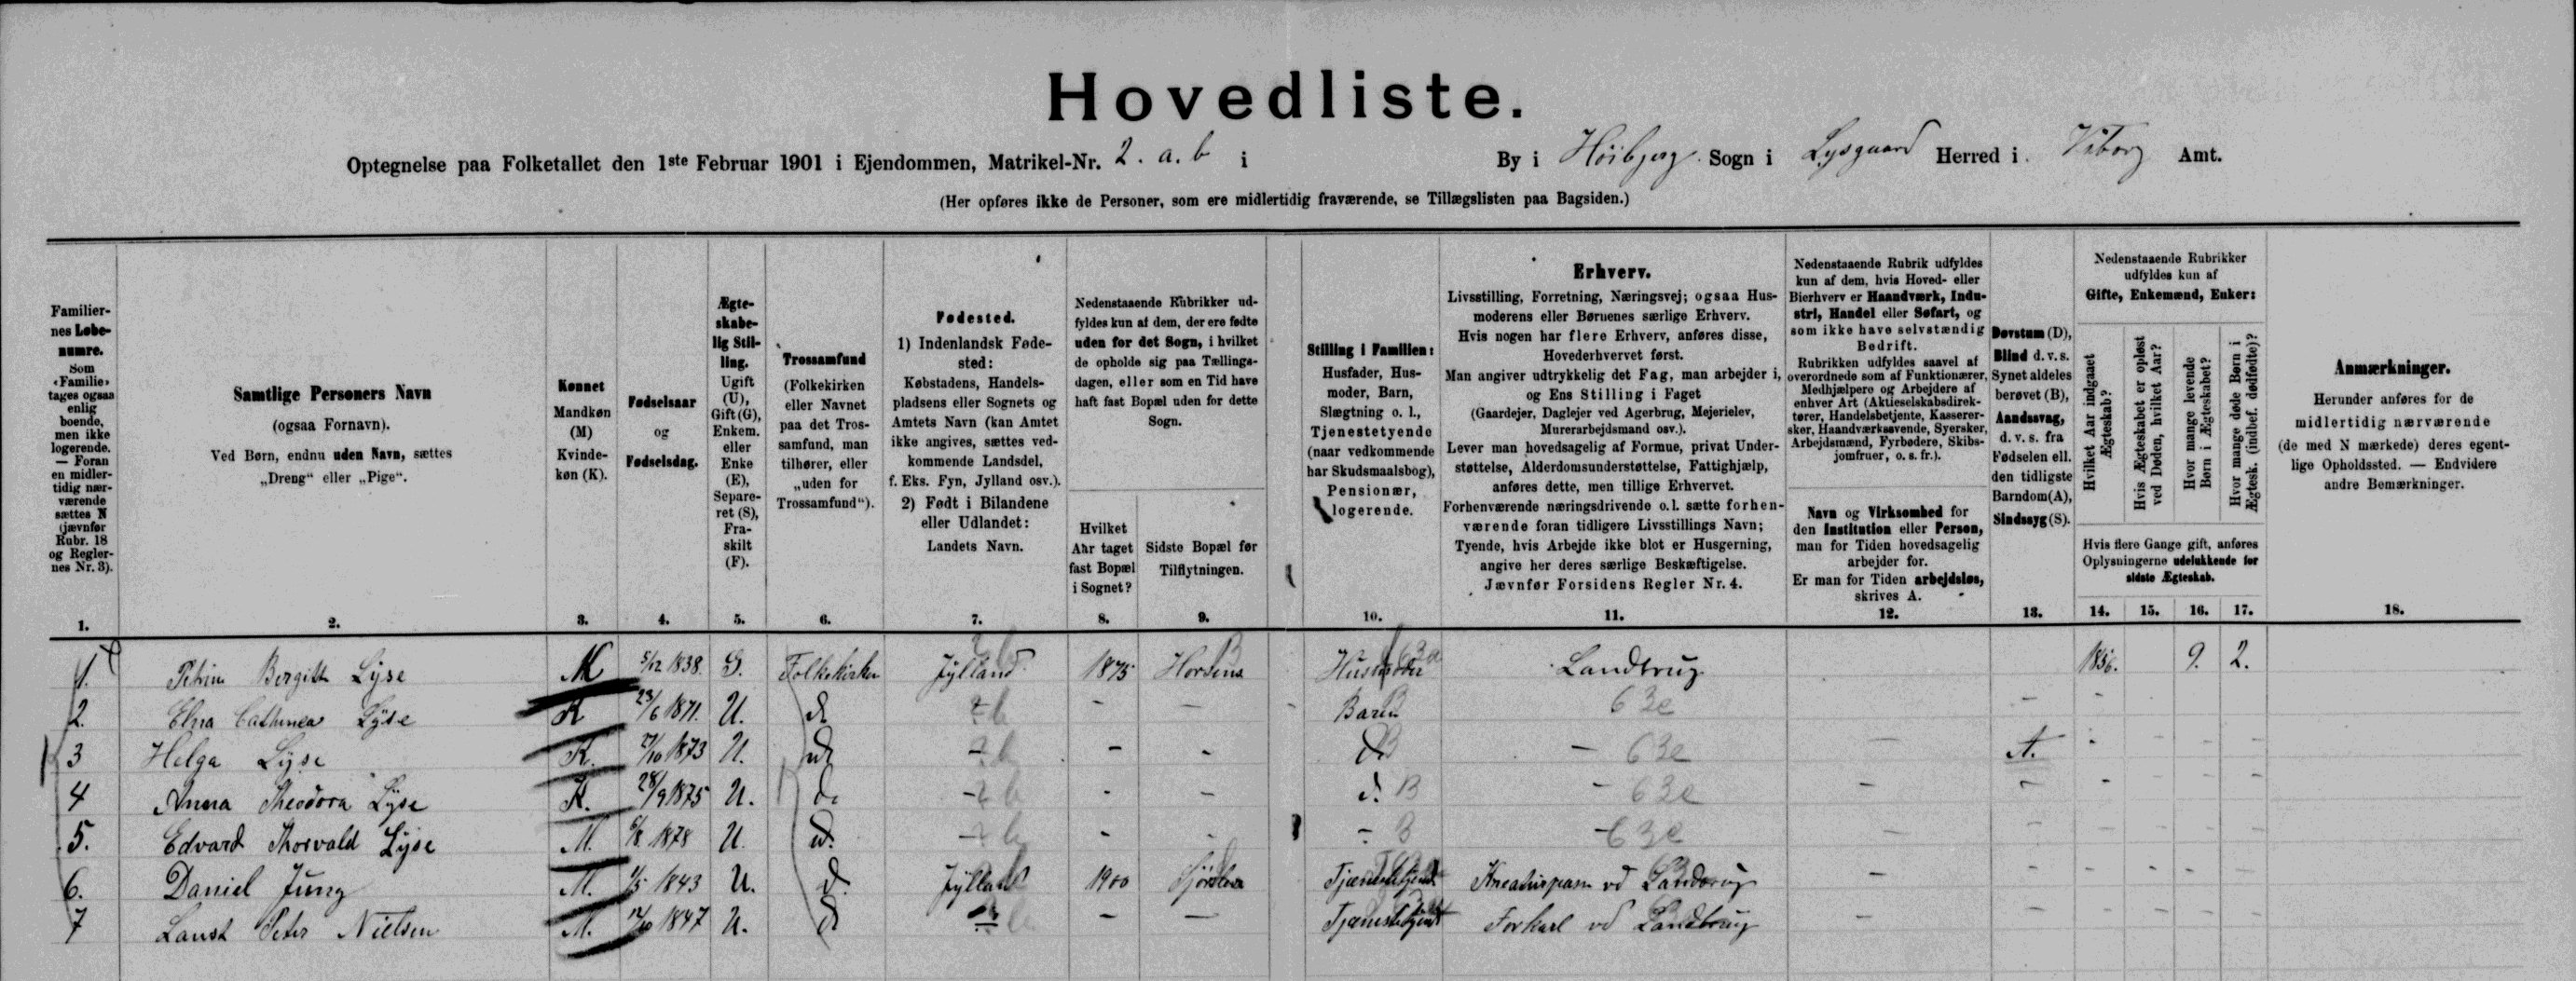 Hovedliste.
Optegnelse paa Folketallet den 1ste Februar 1901 i Ejendommen, Matrikel-Nr. 2. a. b i By i Höibjerg Sogn i Lysgaard Herred i Viborg Amt.
(Her opføres ikke de Personer, som ere midlertidig fraværende, se Tillægslisten paa Bagsiden.)
Familier-
nes Løbe-
numre.
Som
«Familie»
tages ogsaa
enlig
boende,
men ikke
logerende.
— Foran
en midler-
tidig nær-
værende
sættes N
(jævnfør
Rubr. 18
og Regler-
nes Nr. 3).
1.
Samtlige Personers Navn
(ogsaa Fornavn).
Ved Børn, endnu uden Navn, sættes
„Dreng“ eller „Pige“.
2.
Kønnet
Mandkøn
(M)
Kvinde-
køn (K).
3.
Fødselsaar
og
Fødselsdag.
4.
Ægte-
skabe-
lig Stil-
ling.
Ugift
(U),
Gift (G),
Enkem.
eller
Enke
(E),
Separe-
ret (S),
Fra-
skilt
(F).
5.
Trossamfund
(Folkekirken
eller Navnet
paa det Tros-
samfund, man
tilhører, eller
„uden for
Trossamfund“).
6.
Fødested.
1) Indenlandsk Føde-
sted:
Købstadens, Handels-
pladsens eller Sognets og
Amtets Navn (kan Amtet
ikke angives, sættes ved-
kommende Landsdel,
f. Eks. Fyn, Jylland osv.).
2) Født i Bilandene
eller Udlandet:
Landets Navn.
7.
Nedenstaaende Rubrikker ud-
fyldes kun af dem, der ere fødte
uden for det Sogn, i hvilket
de opholde sig paa Tællings-
dagen, eller som en Tid have
haft fast Bopæl uden for dette
Sogn.
Hvilket
Aar taget
fast Bopæl
i Sognet?
8.
Sidste Bopæl før
Tilflytningen.
9.
Stilling i Familien:
Husfader, Hus-
moder, Barn,
Slægtning o. l.,
Tjenestetyende
(naar vedkommende
har Skudsmaalsbog),
Pensionær,
logerende.
10.
Erhverv.
Livsstilling, Forretning, Næringsvej; ogsaa Hus-
moderens eller Børnenes særlige Erhverv.
Hvis nogen har flere Erhverv, anføres disse,
Hovederhvervet først.
Man angiver udtrykkelig det Fag, man arbejder i,
og Ens Stilling i Faget
(Gaardejer, Daglejer ved Agerbrug, Mejerielev,
Murerarbejdsmand osv.).
Lever man hovedsagelig af Formue, privat Under-
støttelse, Alderdomsunderstøttelse, Fattighjælp,
anføres dette, men tillige Erhvervet.
Forhenværende næringsdrivende o.l. sætte forhen-
værende foran tidligere Livsstillings Navn;
Tyende, hvis Arbejde ikke blot er Husgerning,
angive her deres særlige Beskæftigelse.
Jævnfør Forsidens Regler Nr. 4.
11.
Nedenstaaende Rubrik udfyldes
kun af dem, hvis Hoved- eller
Bierhverv er Haandværk, Indu-
stri, Handel eller Søfart, og
som ikke have selvstændig
Bedrift.
Rubrikken udfyldes saavel af
overordnede som af Funktionærer,
Medhjælpere og Arbejdere af
enhver Art (Aktieselskabsdirek-
tører, Handelsbetjente, Kasserer-
sker, Haandværkssvende, Syersker,
Arbejdsmænd, Fyrbødere, Skibs-
jomfruer, o. s. fr.).
Navn og Virksomhed for
den Institution eller Person,
man for Tiden hovedsagelig
arbejder for.
Er man for Tiden arbejdsløs,
skrives A.
12.
Døvstum (D),
Blind d. v. s.
Synet aldeles
berøvet (B),
Aandssvag,
d. v. s. fra
Fødselen ell.
den tidligste
Barndom (A),
Sindssyg (S).
13.
Nedenstaaende Rubrikker
udfyldes kun af
Gifte, Enkemænd, Enker:
Hvilket Aar indgaaet
Ægteskab?
Hvis Ægteskabet er opløst
ved Døden, hvilket Aar?
Hvor mange levende
Børn i Ægteskabet?
Hvor mange døde Børn i
Ægtesk. (indbef. dødfødte)?
Hvis flere Gange gift, anføres
Oplysningerne udelukkende for
sidste Ægteskab.
14. 15. 16. 17.
Anmærkninger.
Herunder anføres for de
midlertidig nærværende
(de med N mærkede) deres egent-
lige Opholdssted. — Endvidere
andre Bemærkninger.
18.
1. Petrine Bergitte Lyse 5/12 1838. G. Folkekirken Jylland 1875 Horsens Husmoder Landbrug 1856. 9. 2.
2. Elna Cathinca Lyse K 23/6 1871. U. do - - Barn 63e -
3 Helga Lyse K. 1873 U. do - - - do - 63e - A. - - - -
4 Anna Theodora Lyse K. 28/9 1875 U. do - - - d. B - 63e - - - - - -
5. Edvard Thorvald Lyse M. 6/8 1878 U. do. - - - - B - 63e - - - - - -
6. Daniel Jung M. 1/5 1843 U. d. Jylland 1900 Tjænestetyende Kreaturpasn vd Landbrug - - - - - -
7 Laust Peter Nielsen M. 1847 U. do - - - Tjænestetyende Forkarl vd Landbrug - - - - - -